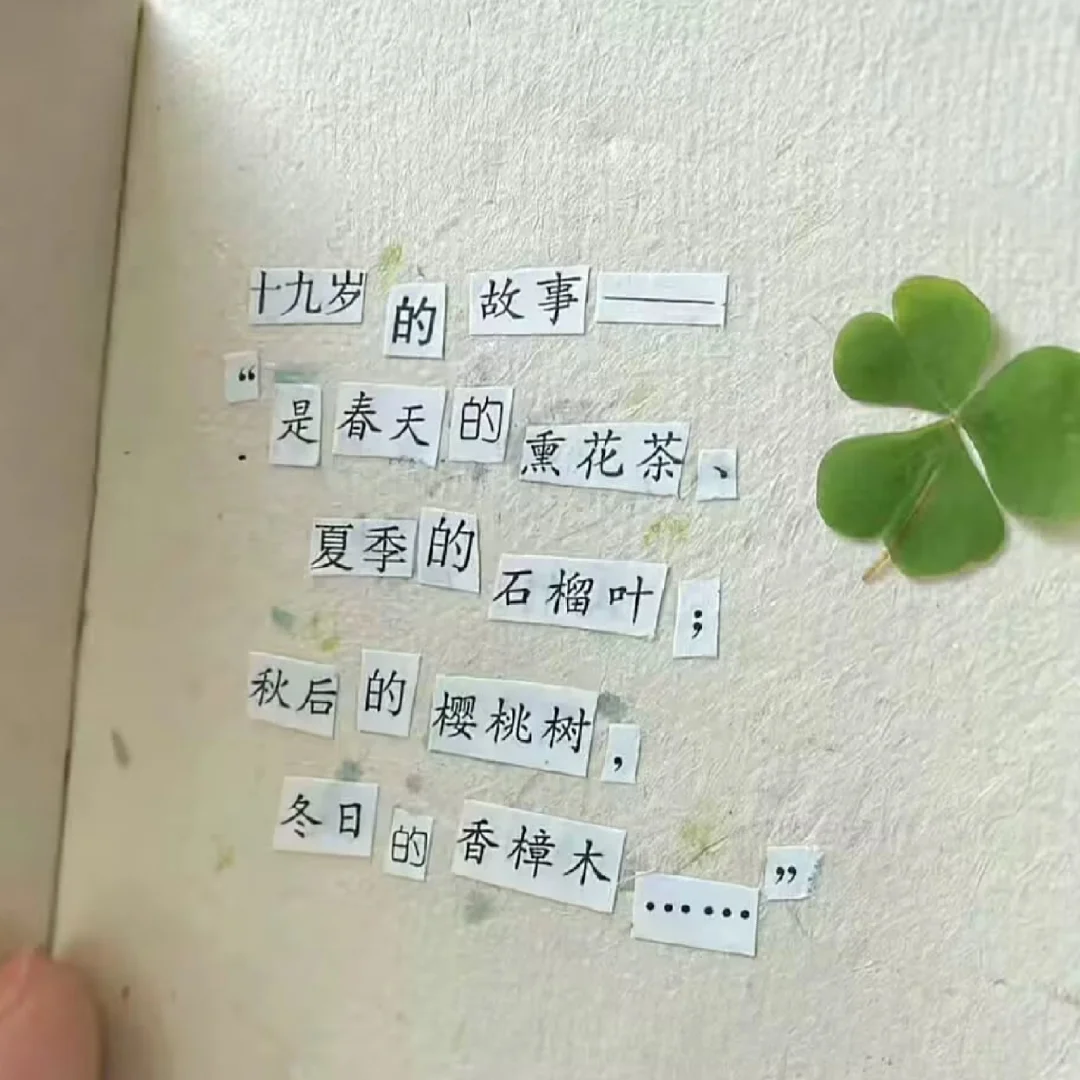 十九岁的故事——
“是春天的熏花茶、
夏季的石榴叶；
秋后的樱桃树，
冬日的香樟木……”